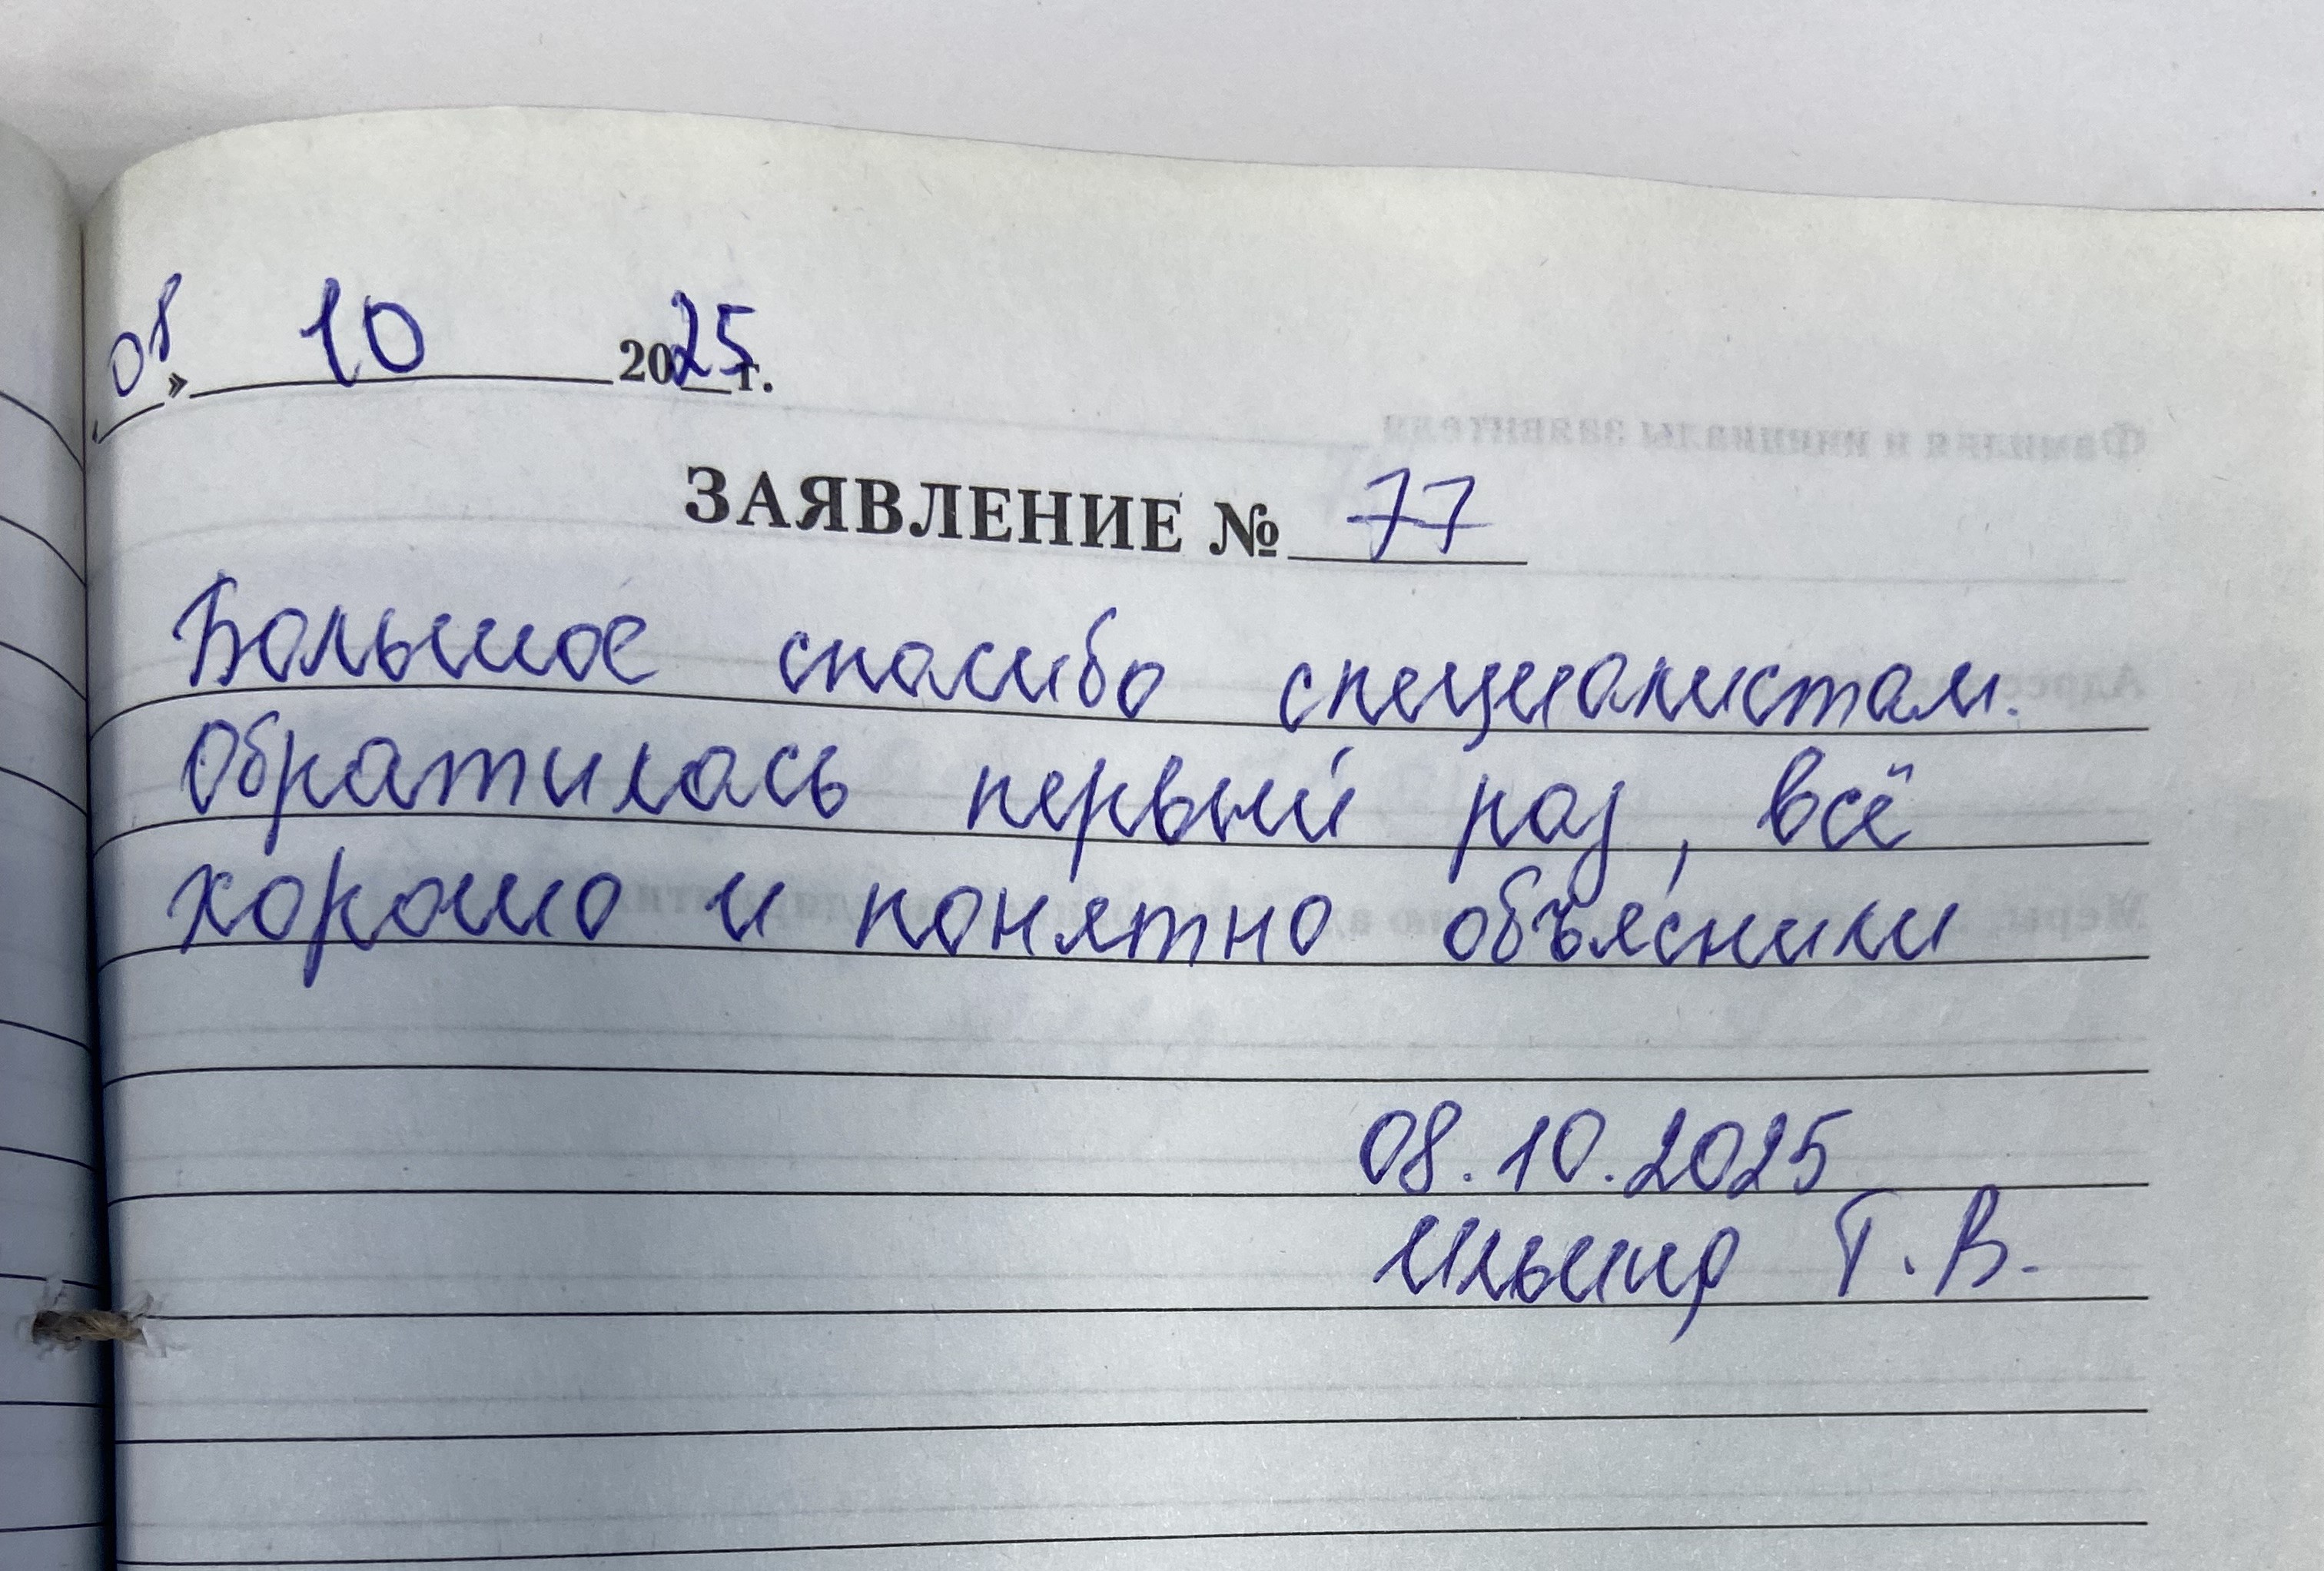 08» 10 2025г.
Фамилия и инициалы заявителя
ЗАЯВЛЕНИЕ № 77
Большое спасибо специалистам.
Обратилась первый раз, всё
хорошо и понятно объяснили
08.10.2025
Т.В.